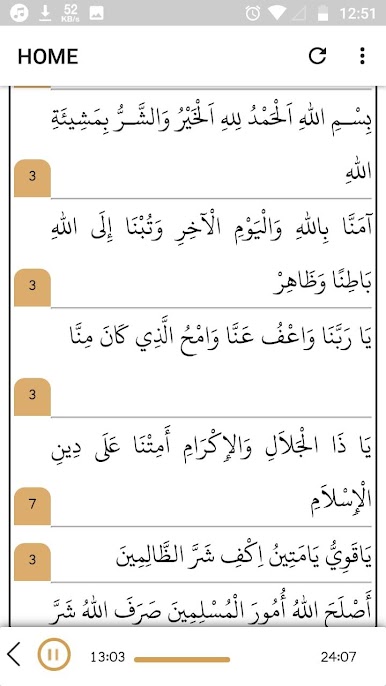 52
KB/s
12:51
HOME
بِسْــمِ اللهِ اَلْحَمْدُ لِلهِ اَلْخَيْرُ وَالشَّــرُّ بِمَشِيئَةِ
اللهِ
3
آمَنَّا بِاللهِ وَالْيَوْمِ الْآخِرِ وَتُبْنَا إِلَى اللهِ
بَاطِنًا وَظَاهِرْ
3
يَا رَبَّنَا وَاعْفُ عَنَّا وَامْحُ الَّذِي كَانَ مِنَّا
3
يَا ذَا الْجَلاَلِ وَالإِكْرَامِ أَمِتْنَا عَلَى دِينِ
الْإِسْلاَمِ
7
يَاقَوِيُّ يَامَتِينُ اِكْفِ شَرَّ الظَّالِمِينَ
3
أَصْلَحَ اللهُ أُمُورَ الْمُسْلِمِينَ صَرَفَ اللهُ شَرَّ
13:03
24:07